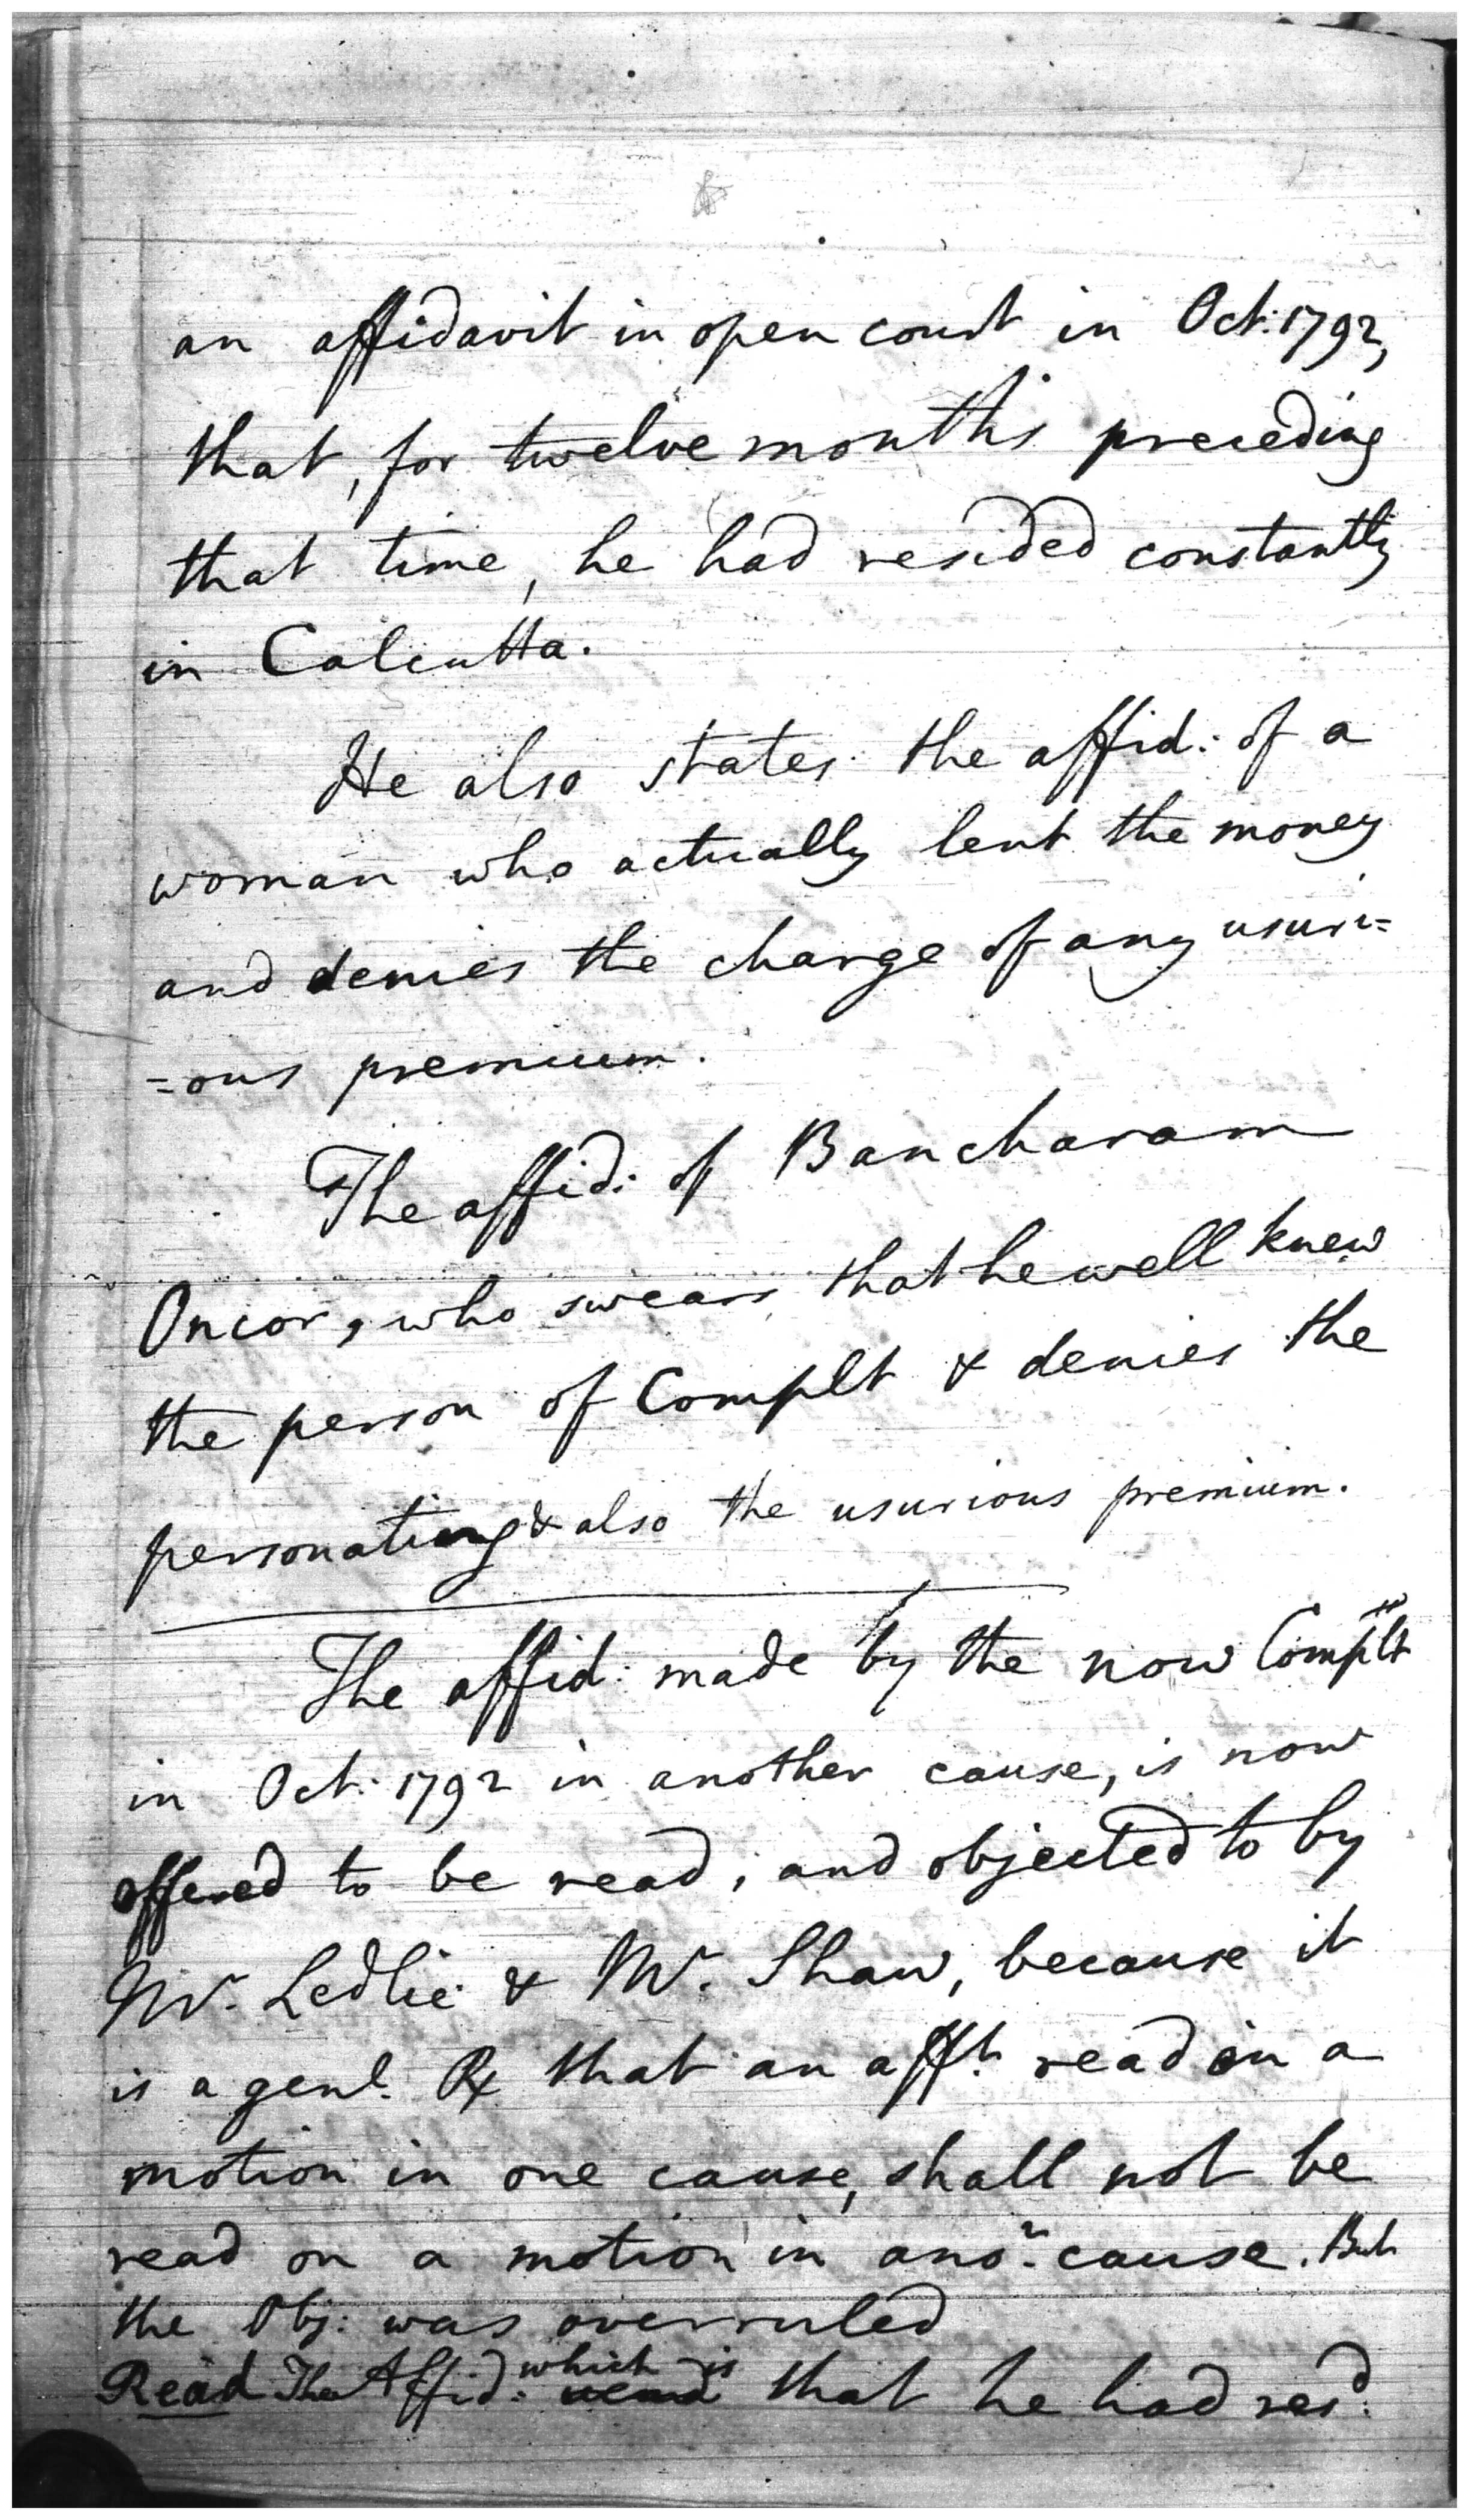 an affidavit in open court in Oct: 1792,
that, for twelve months preceding
that time, he had resided constantly
in Calcutta.
He also states the affid: of a
woman who actually lent the money
and denies the charge of any usuri=
=ous premium.
The affid: of Bancharam
Oncor, who swears that he well knew
the person of Complt & denies the
personating & also the usurious premium.
The affid: made by the now Complt
in Oct: 1792 in another cause, is now
offered to be read, and objected to by
Mr. Ledlie & Mr. Shaw, because it
is a genl. R that an afft. read in a
motion in one cause, shall not be
read on a motion in anor. cause. But
the Obj: was overruled
Read The Affid: which is that he had resd.